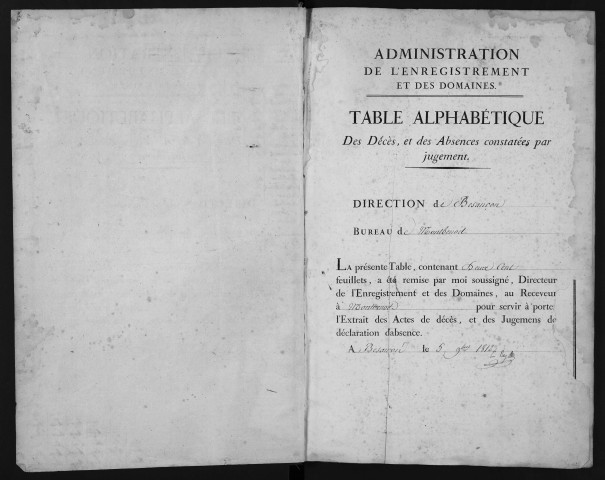 ADMINISTRATION
DE L'ENREGISTREMENT
ET DES DOMAINES.
TABLE ALPHABÉTIQUE
Des Décès, et des Absences constatées par
jugement.
DIRECTION de Besançon
BUREAU de Montbenoit
LA présente Table, contenant Deux Cent
feuillets, a été remise par moi soussigné, Directeur
de l'Enregistrement et des Domaines, au Receveur
à Montbenoit pour servir à porter
l'Extrait des Actes de décès, et des Jugemens de
déclaration d'absence.
A Besançon le 5 9bre